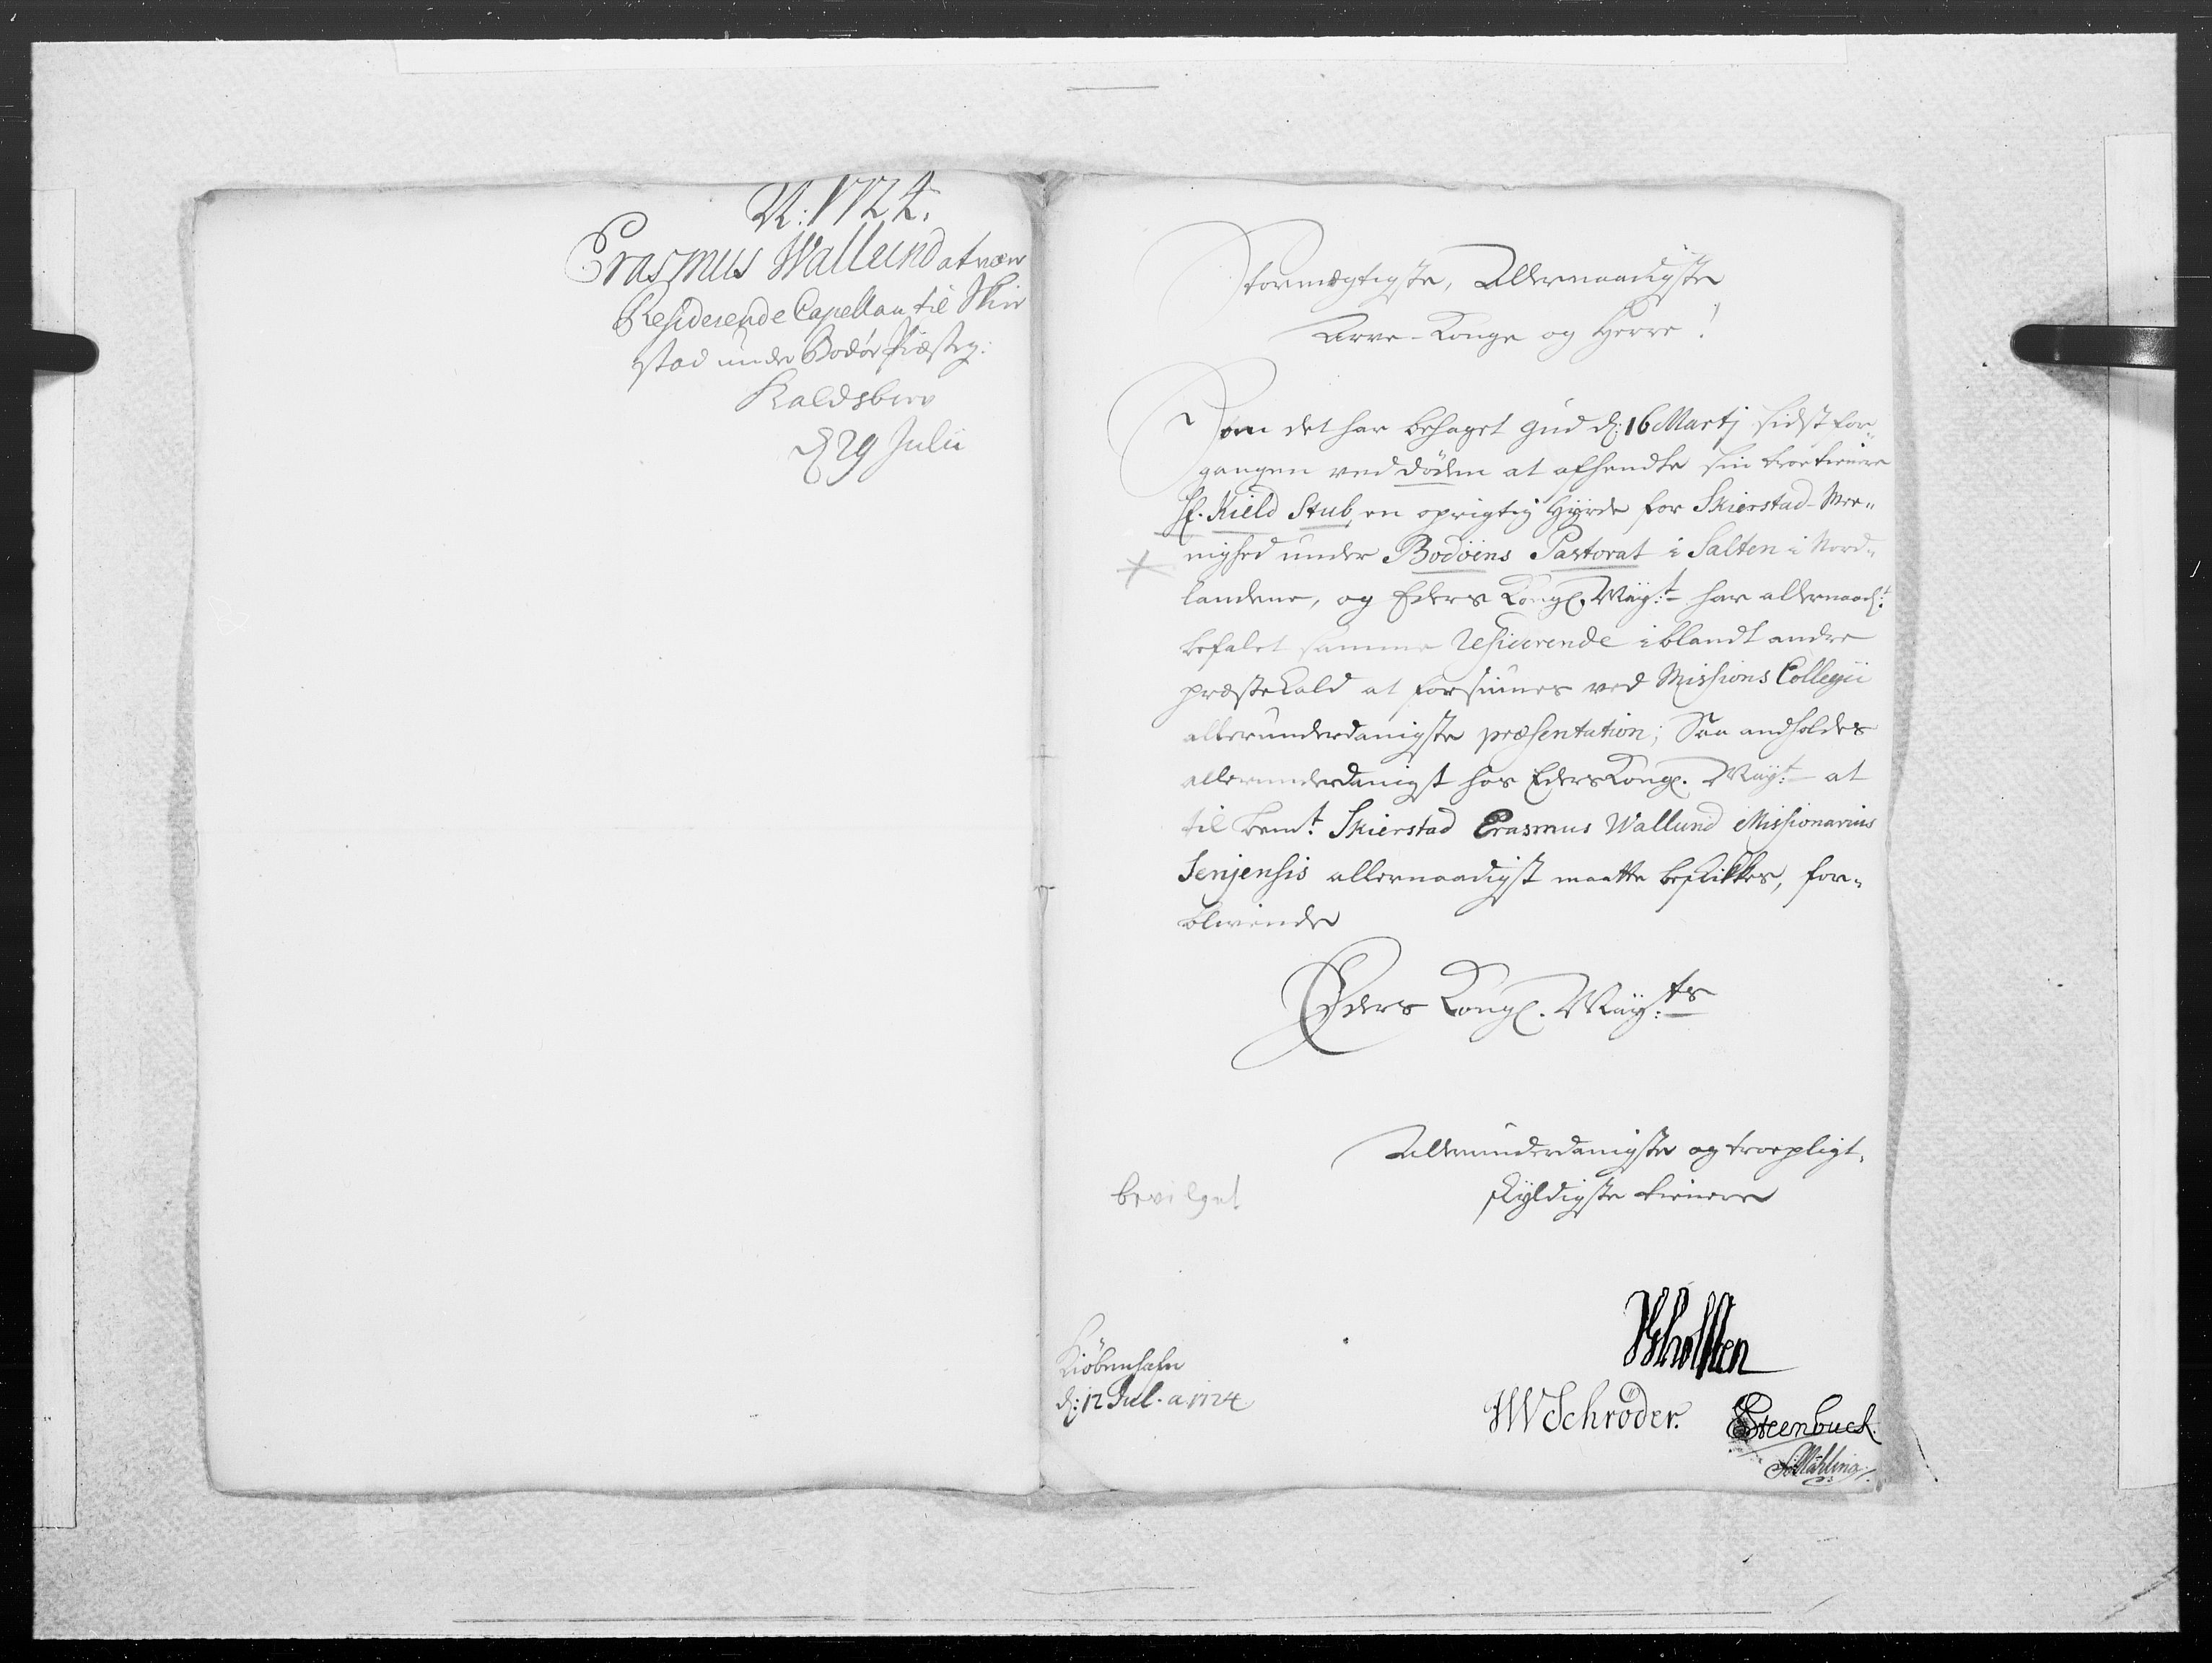 A: 1724.
Erasmus Wallund at være
Residerende Capellan til Skier
stad under Bodøe Præsteg:
Kaldsbrev
d 29 Julii
Stormægtigste, Allernaadigste
Arve-Konge og Herre!
Som det har behaget Gud d: 16 Martj sidst for„
gangen ved døden at afhendte sin troe tienere
Hr. Kield Stub, en oprigtig Hyrde for Skierstad-Mee„
nighed under Bodöens Pastorat i Salten i Nord„
landene, og Eders Kongl. May:t har allernaad:t
befalet samme residerende iblandt andre
præstekald at forsiunes ved Missions Collegii
allerunderdanigste præsentation; Saa andholdes
allerunderdanigst hos Eders Kongl. May:t at
til bem:t Skierstad Erasmus Wallund Missionarius
Senjensis allernaadigst maatte beskikkes, for„
blivende
Eders Kongl. May:ts
Allerunderdanigste og troepligt„
skyldigste tienere
bevilget
Kiöbenhafn
d: 12 Jul. a. 1724
JGholsten
HWSchröder. Steenbuch.